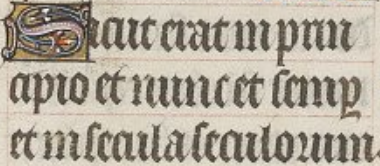 Sicut erat in prin
cipio et nunc et semꝑ
et in secula seculorum.